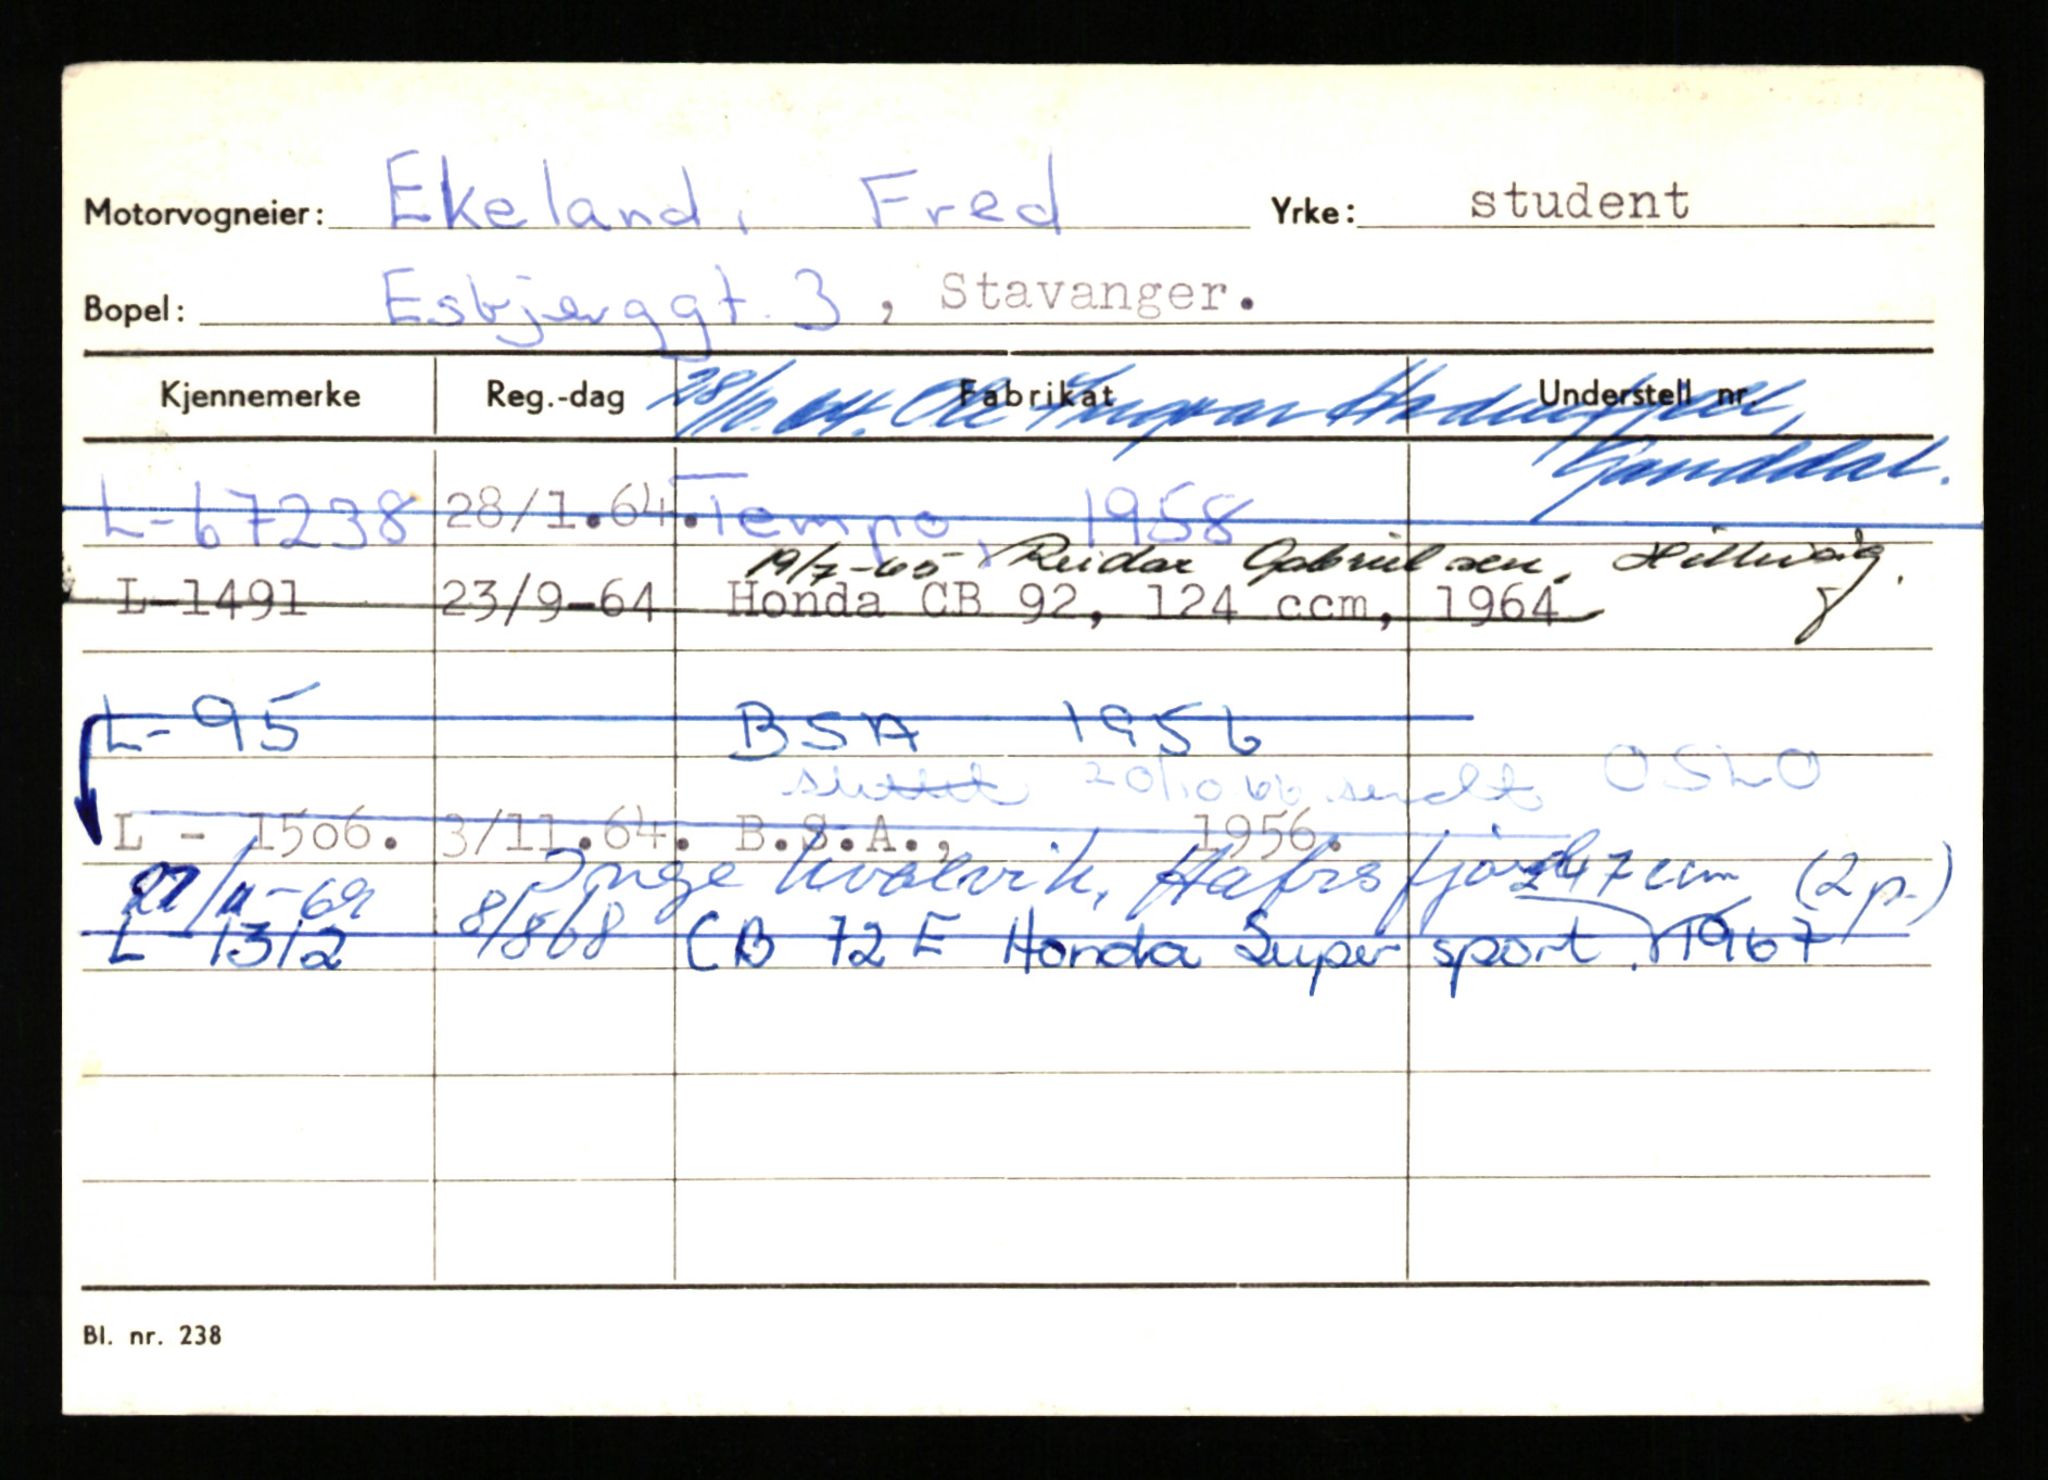 Motorvogneier: Ekeland, Fred Yrke: student
Bopel: Esbjerggt. 3, Stavanger.
Kjennemerke Reg.-dag Fabrikat Understell nr.
28/10.64. Ole Ingvar
Ganddal.
L-67238 28/1.64. Tempo, 1958
19/7-65 Reidar Gabrielsen, Hillevåg.
L-1491 23/9-64 Honda CB 92, 124 ccm, 1964
L-95 BSA 1956
slettet 20/10 66 sendt OSLO
L - 1506. 3/11.64. B.S.A., 1956.
27/11-69 Inge Kvalvik, Hafrsfjord 247 ccm (2 p.)
L 1312 8/8 68 CB 72 E Honda Super sport, 1967
Bl. nr. 238